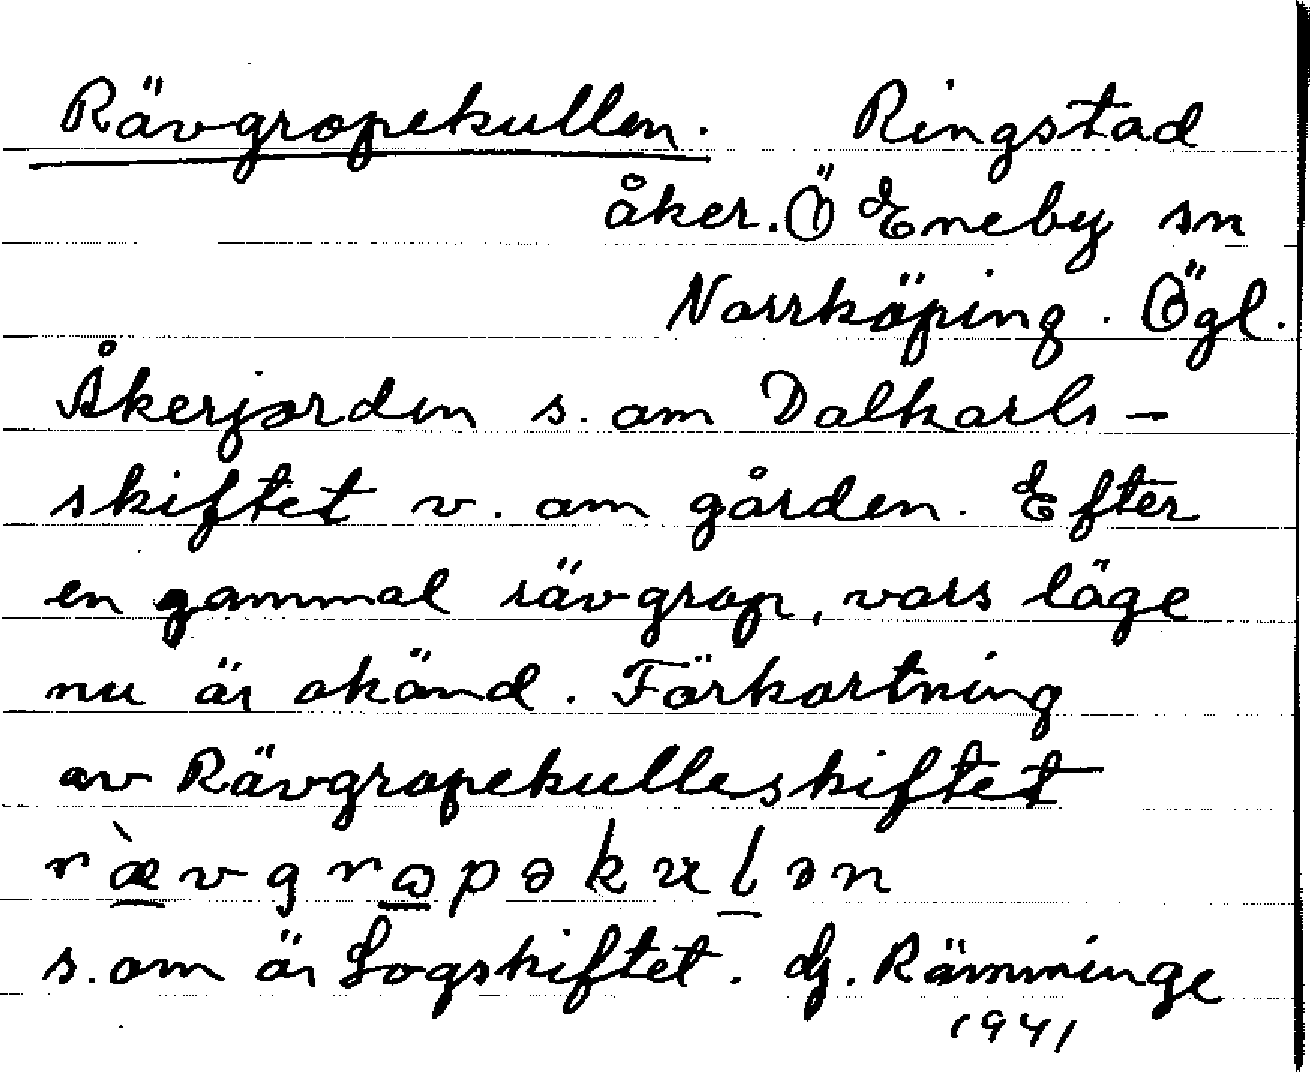 Rävgropekullen. Ringstad
åker. Ö Eneby sn
Norrköping. Ögl.
Åkerjorden s. om Dalkarls-
skiftet v. om gården. Efter
en gammal rävgrop, vars läge
nu är okänd. Förkortning
av Rävgropekulleskiftet
ræ̀vgrɷpəkulən
s. om är Logskiftet. Rämminge
1941